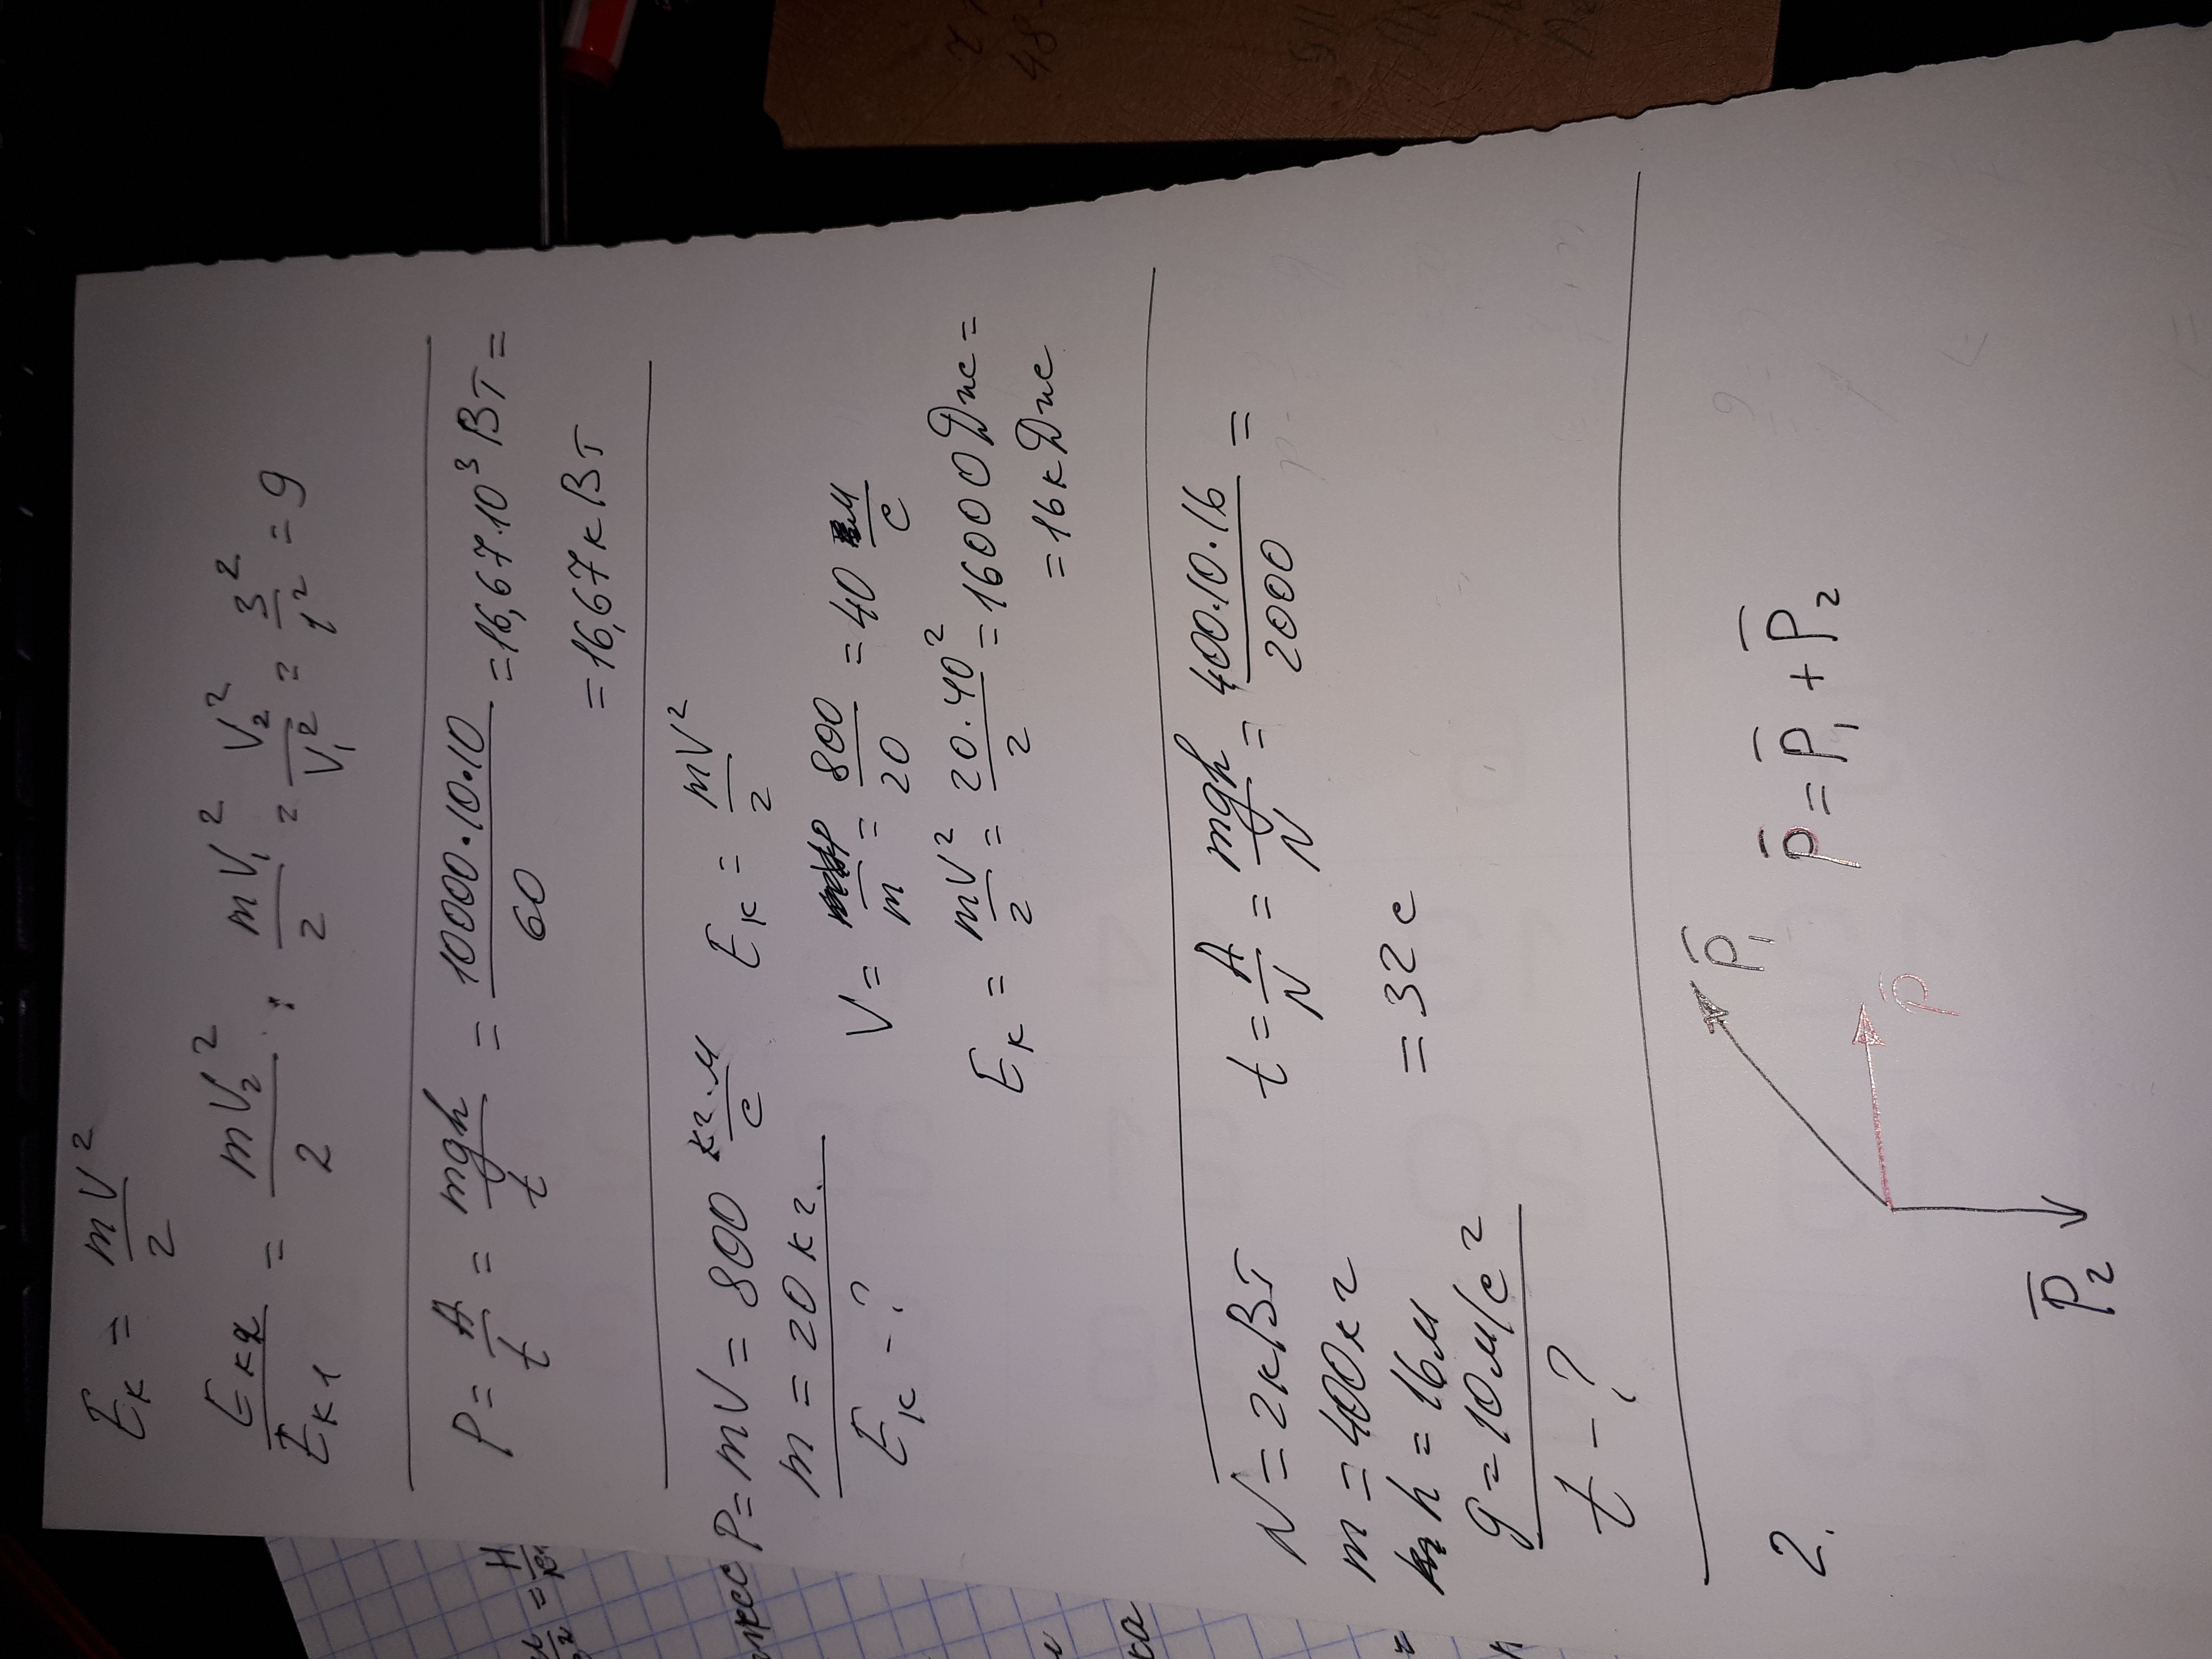 Eк = mV²/2
Eк2/Eк1 = mV₂²/2 : mV₁²/2 = V₂²/V₁² = 3²/1² = 9
P = A/t = mgh/t = 10000·10·10/60 = 16,67·10³ Вт =
= 16,67 кВт
P = mV = 800 кг·м/с Eк = mV²/2
m = 20 кг.
V = P/m = 800/20 = 40 м/с
Eк - ?
Eк = mV²/2 = 20·40²/2 = 16000 Дж =
= 16 кДж
N = 2кВт t = A/N = mgh/N = 400·10·16/2000 =
m = 400кг = 32 с
h = 16м
g = 10м/с²
t - ?
2.
P̄₁
P̄ = P̄₁ + P̄₂
P̄
P̄₂